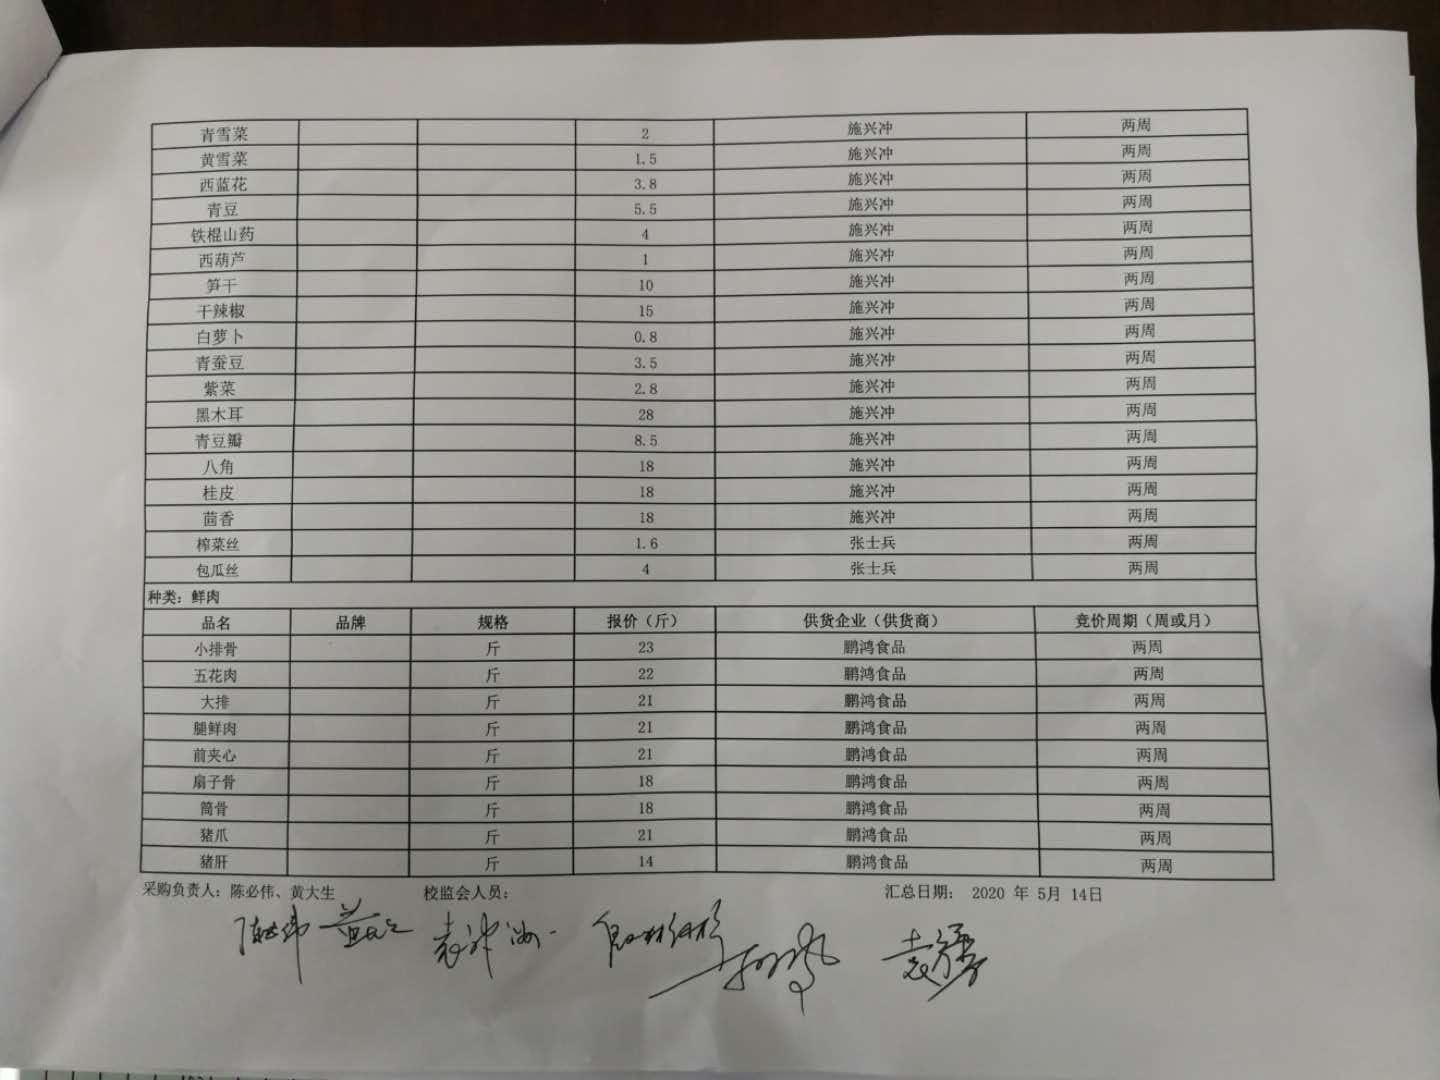 青雪菜 2 施兴冲 两周
黄雪菜 1.5 施兴冲 两周
西蓝花 3.8 施兴冲 两周
青豆 5.5 施兴冲 两周
铁棍山药 4 施兴冲 两周
西葫芦 1 施兴冲 两周
笋干 10 施兴冲 两周
干辣椒 15 施兴冲 两周
白萝卜 0.8 施兴冲 两周
青蚕豆 3.5 施兴冲 两周
紫菜 2.8 施兴冲 两周
黑木耳 28 施兴冲 两周
青豆瓣 8.5 施兴冲 两周
八角 18 施兴冲 两周
桂皮 18 施兴冲 两周
茴香 18 施兴冲 两周
榨菜丝 1.6 张士兵 两周
包瓜丝 4 张士兵 两周
种类：鲜肉
品名 品牌 规格 报价（斤） 供货企业（供货商） 竞价周期（周或月）
小排骨 斤 23 鹏鸿食品 两周
五花肉 斤 22 鹏鸿食品 两周
大排 斤 21 鹏鸿食品 两周
腿鲜肉 斤 21 鹏鸿食品 两周
前夹心 斤 21 鹏鸿食品 两周
扇子骨 斤 18 鹏鸿食品 两周
筒骨 斤 18 鹏鸿食品 两周
猪爪 斤 21 鹏鸿食品 两周
猪肝 斤 14 鹏鸿食品 两周
采购负责人：陈必伟、黄大生 校监会人员： 汇总日期： 2020 年 5月 14日